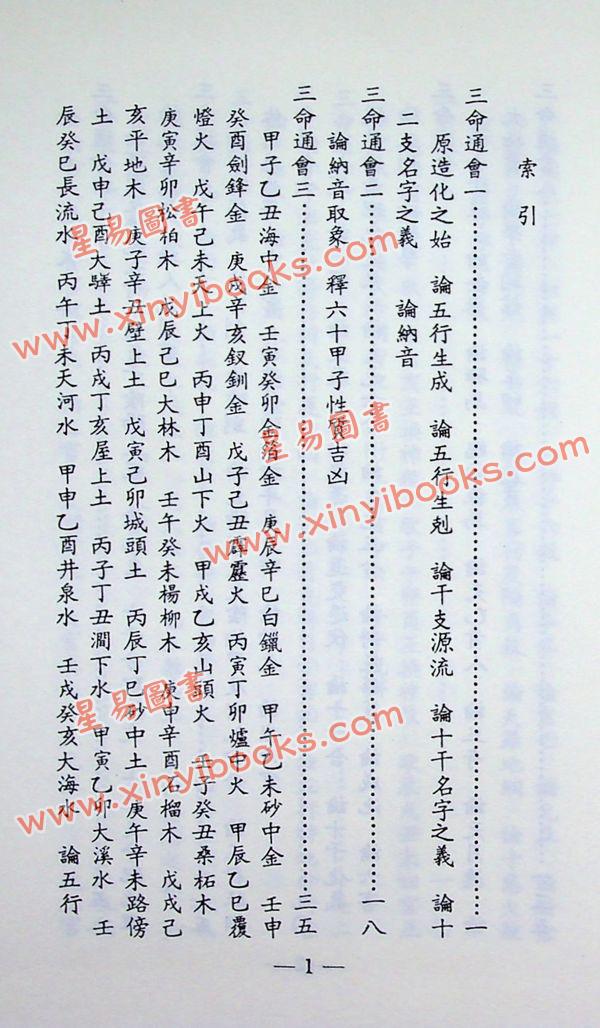 索引
三命通會一………………………………一
原造化之始　論五行生成　論五行生剋　論干支源流　論十干名字之義　論十
二支名字之義　論納音
三命通會二………………………………一八
論納音取象　釋六十甲子性質吉凶
三命通會三………………………………三五
甲子乙丑海中金　壬寅癸卯金箔金　庚辰辛巳白鑞金　甲午乙未砂中金　壬申
癸酉劍鋒金　庚戌辛亥釵釧金　戊子己丑霹靂火　丙寅丁卯爐中火　甲辰乙巳覆
燈火　戊午己未天上火　丙申丁酉山下火　甲戌乙亥山頭火　壬子癸丑桑柘木
庚寅辛卯松柏木　戊辰己巳大林木　壬午癸未楊柳木　庚申辛酉石榴木　戊戌己
亥平地木　庚子辛丑壁上土　戊寅己卯城頭土　丙辰丁巳砂中土　庚午辛未路傍
土　戊申己酉大驛土　丙戌丁亥屋上土　丙子丁丑澗下水　甲寅乙卯大溪水　壬
辰癸巳長流水　丙午丁未天河水　甲申乙酉井泉水　壬戌癸亥大海水　論五行
— 1 —
星易圖書
www.xinyibooks.com
星易圖書
www.xinyibooks.com
星易圖書
www.xinyibooks.com